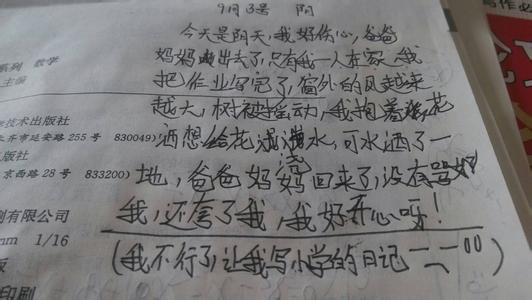 9月3号 阴
今天是阴天,我好伤心,爸爸
妈妈出去了,只有我一人在家,我
把作业写完了,窗外的风越来
越大,树被摇动,我抱着花
洒想给花浇水,可水洒了一
地,爸爸妈妈回来了,没有骂
我,还夸了我,我好开心呀!
(我不行了,让我写小学的日记一一一00)
系列 数学
主编
技术出版社
齐市延安路 255 号 830049)
出版社
京西路 28 号 833200)
刷有限公司
mm 1/16
版
印刷
写作必